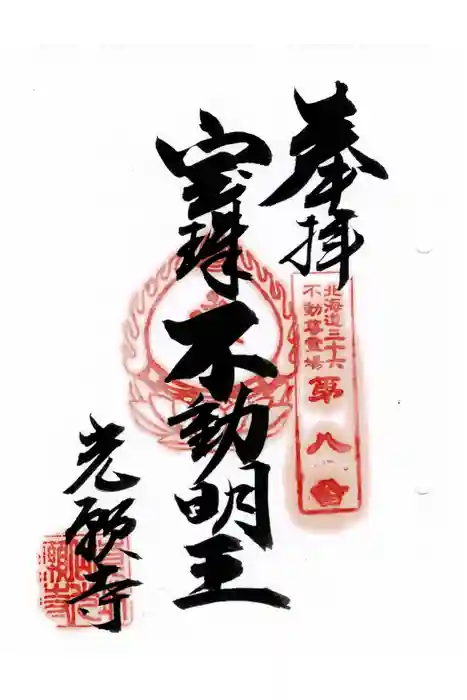 奉拝
北海道三十六
不動尊霊場
第八番
宝珠
不動明王
光願寺